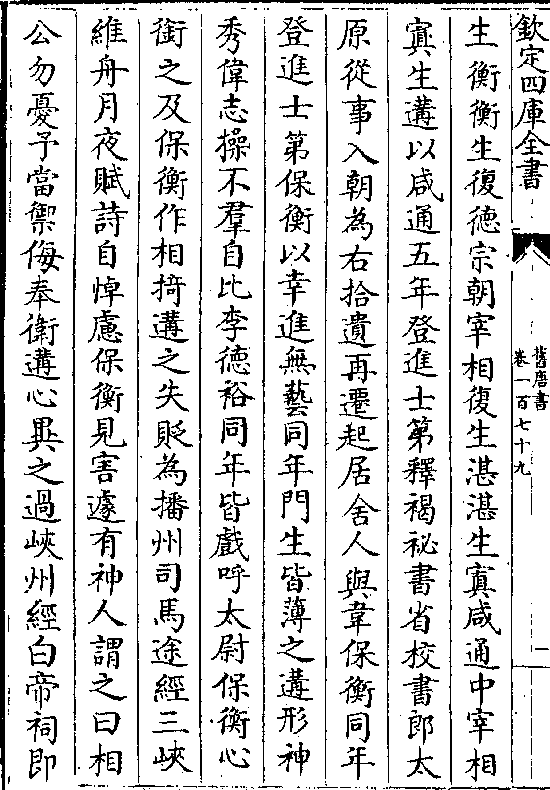 欽定四庫全書
舊唐書
卷一百七十九
一
生衡衡生復德宗朝宰相復生湛湛生寘咸通中宰相
寘生遘以咸通五年登進士第釋褐祕書省校書郎太
原從事入朝為右拾遺再遷起居舍人與韋保衡同年
登進士第保衡以幸進無藝同年門生皆薄之遘形神
秀偉志操不羣自比李德裕同年皆戲呼太尉保衡心
銜之及保衡作相掎遘之失貶為播州司馬途經三峽
維舟月夜賦詩自悼慮保衡見害遽有神人謂之曰相
公勿憂予當禦侮奉衛遘心異之過峽州經白帝祠即